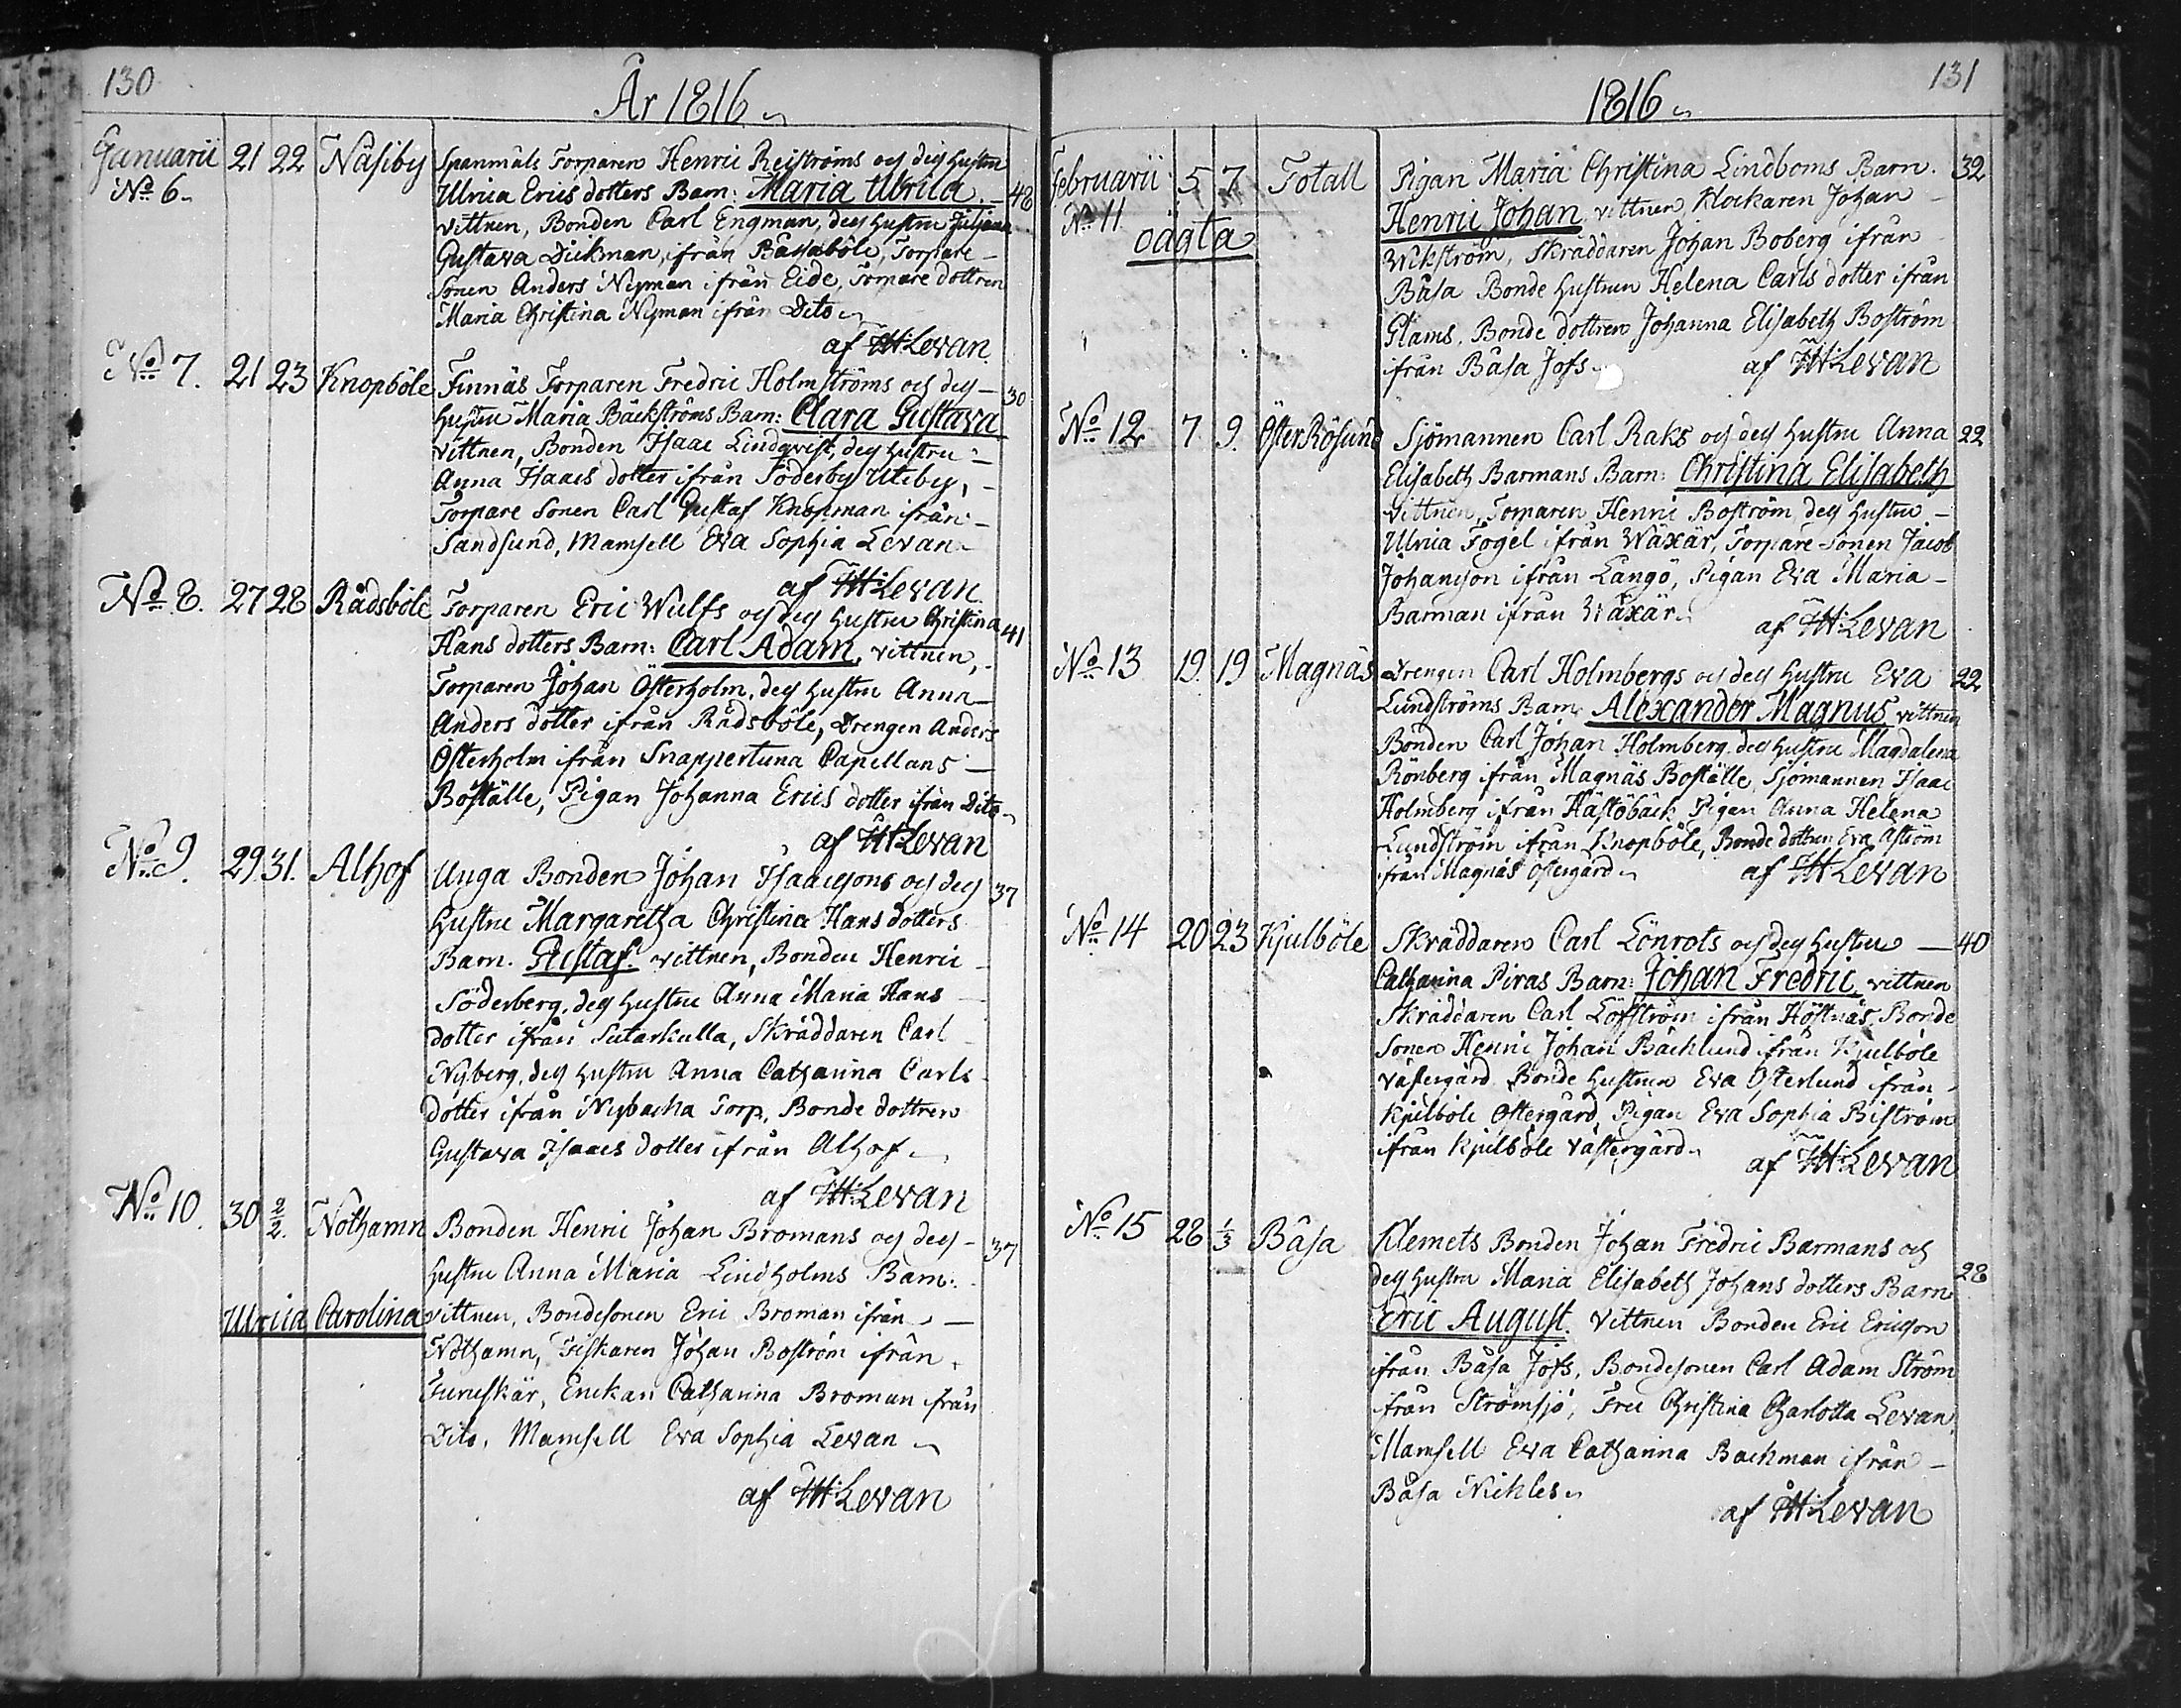 130
År 1816
Januarii 21 22 Näsiby Spanmåls Torparen Henric Reiströms och des hustru
No 6. Ulrica Erics dotters Barn: Maria Ulrica. 48
vittnen, Bonden Carl Engman, des hustru Juliana
Gustava Dickman, ifrån Båssaböle, Torpare
Sonen Anders Nyman ifrån Eide, Torpare dottren
Maria Christina Nyman ifrån Dito
af FH: Levan
No 7. 21 23 Knopböle Finnäs Torparen Fredric Holmströms och des 30
hustru Maria Bäckströms Barn: Clara Gustava
vittnen, Bonden Isaac Lindqvist, des hustru
Anna Isaacs dotter ifrån Söderby Uteby,
Torpare Sonen Carl Gustaf Knopman ifrån
Sandsund, Mamsell Eva Sophia Levan
af FH: Levan
No 8. 27 28 Rådsböle Torparen Eric Wulfs och des hustru Christina 41
Hans dotters Barn: Carl Adam, vittnen,
Torparen Johan Österholm, des hustru Anna
Anders dotter ifrån Rådsböle, Drengen Anders
Österholm ifrån Snappertuna Capellans
Boställe, Pigan Johanna Erics dotter ifrån Dito
af FH: Levan
No 9. 29. 31. Alhof Unga Bonden Johan Isaacsons och des 37
hustru Margaretha Christina Hans dotters
Barn. Gustaf. vittnen, Bonden Henric
Söderberg, des hustru Anna Maria Hans
dotter ifrån Sutarkulla, Skräddaren Carl
Nyberg, des hustru Anna Catharina Carls
dotter ifrån Nybacka Torp, Bonde dottren
Gustava Isaacs dotter ifrån Alhof
af FH: Levan
No 10. 30 2/2. Nothamn Bonden Henric Johan Bromans och des 37
hustru Anna Maria Lindholms Barn:
Ulrica Carolina vittnen, Bondesonen Eric Broman ifrån
Nothamn, Fiskaren Johan Boström ifrån
Furuskär, Enckan Catharina Broman ifrån
Dito, Mamsell Eva Sophia Levan
af FH: Levan
131
1816
Februarii 5 7 Totall Pigan Maria Christina Lindboms Barn. 32
No 11. Henric Johan, vittnen, Klockaren Johan
oägta Wikström, Skräddaren Johan Boberg ifrån
Båsa Bonde hustrun Helena Carls dotter ifrån
Glams, Bonde dottren Johanna Elisabeth Boström
ifrån Båsa Jofs af FH: Levan
No 12 7. 9. Öster Rösund Sjömannen Carl Raks och des hustru Anna 22
Elisabeth Barmans Barn: Christina Elisabeth
vittnen, Torparen Henric Boström, des hustru
Ulrica Fogel ifrån Wäxär, Torpare Sonen Jacob
Johanson ifrån Långö, Pigan Eva Maria
Barman ifrån Wäxär
af FH: Levan
No 13 19. 19 Magnäs Drengen Carl Holmbergs och des hustru Eva 22
Lundströms Barn. Alexander Magnus, vittnen
Bonden Carl Johan Holmberg, des hustru Magdalena
Rönberg ifrån Magnäs Boställe, Sjömannen Isaac
Holmberg ifrån Hästöbäck, Pigan Anna Helena
Lundström ifrån Knopböle, Bonde dottren Eva Aström
ifrån Magnäs Östergård af FH: Levan
No 14 20 23 Kjulböle Skräddaren Carl Lönrots och des hustru 40
Catharina Piras Barn: Johan Fredric, vittnen
Skräddaren Carl Löfström ifrån Höstnäs, Bonde
Sonen Henric Johan Bäcklund ifrån Kjulböle
västergård, Bonde hustrun Eva Österlund ifrån
Kjulböle Östergård, Pigan Eva Sophia Biström
ifrån Kjulböle västergård
af FH: Levan
No 15 28 1/3 Båsa Klemets Bonden Johan Fredric Barmans och
des hustru Maria Elisabeth Johans dotters Barn 28
Eric August. Vittnen Bonden Eric Ericson
ifrån Båsa Jofs, Bondesonen Carl Adam Ström
ifrån Strömsjö, Fru Christina Charlotta Levan,
Mamsell Eva Catharina Backman ifrån
Båsa Nickles
af FH: Levan